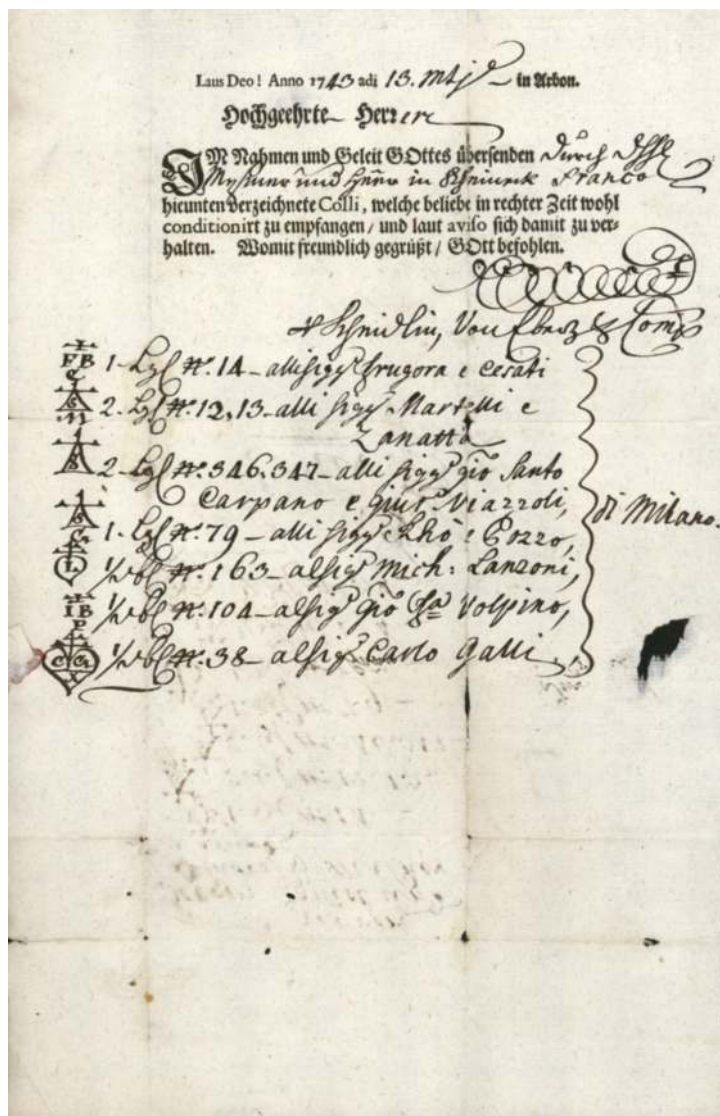 Laus Deo! Anno 1743 adi 13. in Arbon.
Hochgeehrte Herren
IM Nahmen und Geleit GOttes übersenden durch
und in Rheineck Franco
hieunten verzeichnete Colli, welche beliebe in rechter Zeit wohl
conditionirt zu empfangen / und laut aviso sich damit zu ver-
halten. Womit freundlich gegrüßt / GOtt befohlen.
Von
FB 1 Lgl N.º 14 - alli sigg.ri e Cesati
2 Lgl N.º 12, 13 - alli sigg.ri Martelli e
Zanatta
2 Lgl N.º 346. 347 - alli sigg.ri Gio Santo
Carpano e Viazzoli,
1 Lgl N.º 79 - alli sigg.ri Rhò e Pozzo,
di Milano.
L N.º 163 - al sig.r Mich: Lanzoni,
IB P N.º 104 - al sig.r Gio Volpino,
CG N.º 38 - al sig.r Carlo Galli